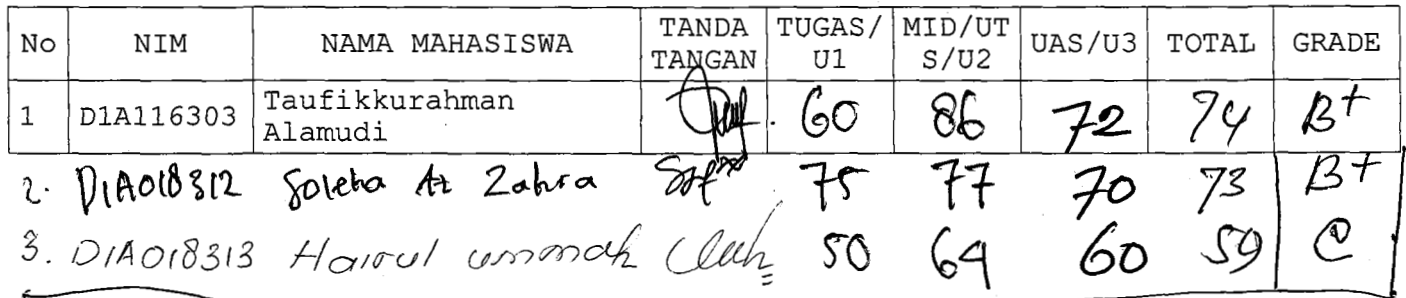 No NIM NAMA MAHASISWA TANDA TANGAN TUGAS/U1 MID/UTS/U2 UAS/U3 TOTAL GRADE
1 D1A116303 Taufikkurahman Alamudi 60 86 72 74 B+
2. D1A018312 Soleha Az Zahra 75 77 70 73 B+
3. D1A018313 Hairul ummah 50 64 60 59 C